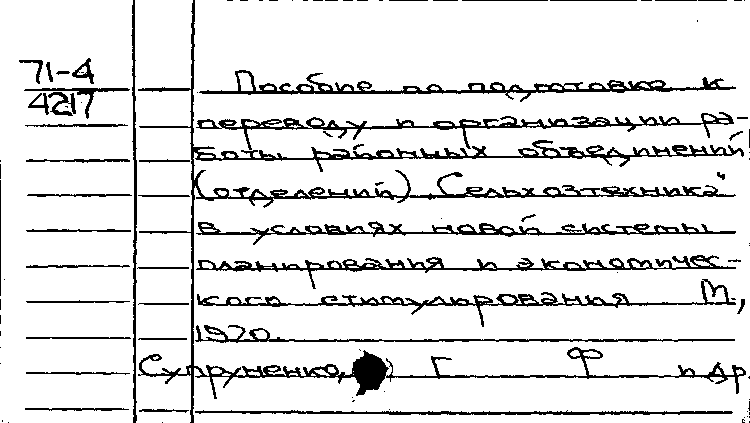 71-4
4217
Пособие по подготовке к
переводу и организации ра-
боты районных объединений
(отделений) „Сельхозтехника"
в условиях новой системы
планирования и экономичес-
кого стимулирования М,
1970.
Супруненко, Г Ф и др